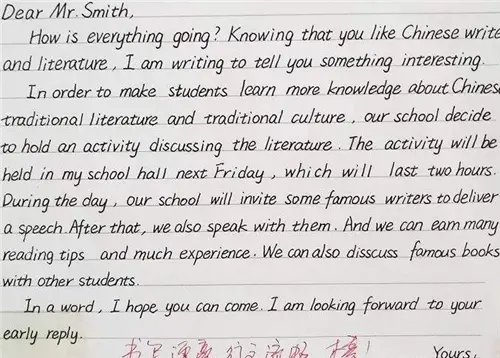 Dear Mr. Smith,
How is everything going? Knowing that you like Chinese write
and literature, I am writing to tell you something interesting.
In order to make students learn more knowledge about Chines
traditional literature and traditional culture, our school decide
to hold an activity discussing the literature. The activity will be
held in my school hall next Friday, which will last two hours.
During the day, our school will invite some famous writers to deliver
a speech. After that, we also speak with them. And we can earn many
reading tips and much experience. We can also disscuss famous books
with other students.
In a word, I hope you can come. I am looking forward to your
early reply.
书写漂亮 行文流畅 棒!
Yours,